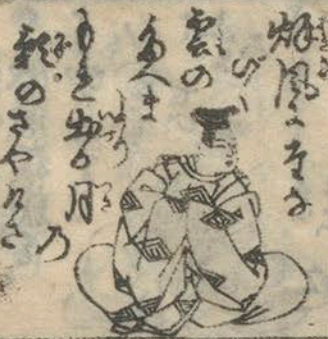 秋風にたな
びく
雲の
たえま
より
もれ出る月の
影のさやけさ